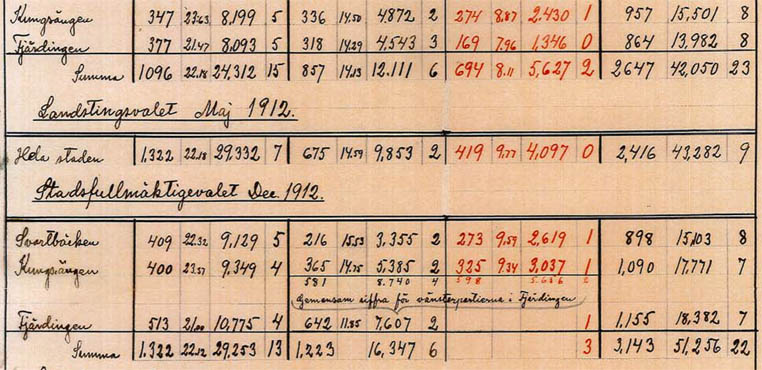 Kungsängen 347 23.63 8,199 5 336 14.50 4872 2 274 8.87 2,430 1 957 15,501 8
Fjärdingen 377 21.47 8,093 5 318 14.29 4,543 3 169 7.96 1,346 0 864 13,982 8
Summa 1096 22.18 24,312 15 857 14.13 12.111 6 694 8.11 5,627 2 2647 42,050 23
Landstingsvalet Maj 1912.
Hela staden 1,322 22.18 29,332 7 675 14.59 9,853 2 419 9.77 4,097 0 2,416 43,282 9
Stadsfullmäktigevalet Dec. 1912.
Svartbäcken 409 22.32 9,129 5 216 15.53 3,355 2 273 9.59 2,619 1 898 15,103 8
Kungsängen 400 23.37 9,349 4 365 14.75 5,385 2 325 9.34 3,037 1 1,090 17,771 7
581 8.740 4 598 5.656 2
Gemensam siffra för vänsterpartierna i Fjärdingen
Fjärdingen 513 21.00 10,775 4 642 11.85 7,607 2 1 1,155 18,382 7
Summa 1,322 22.12 29,253 13 1,223 16,347 6 3 3,143 51,256 22